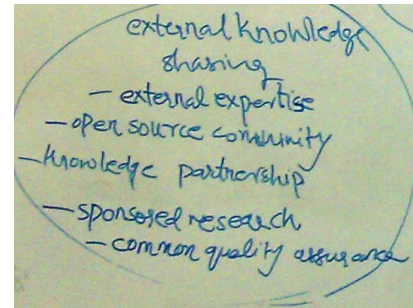 external knowledge
sharing
- external expertise
- open source community
- knowledge partnership
- sponsored research
- common quality assurance